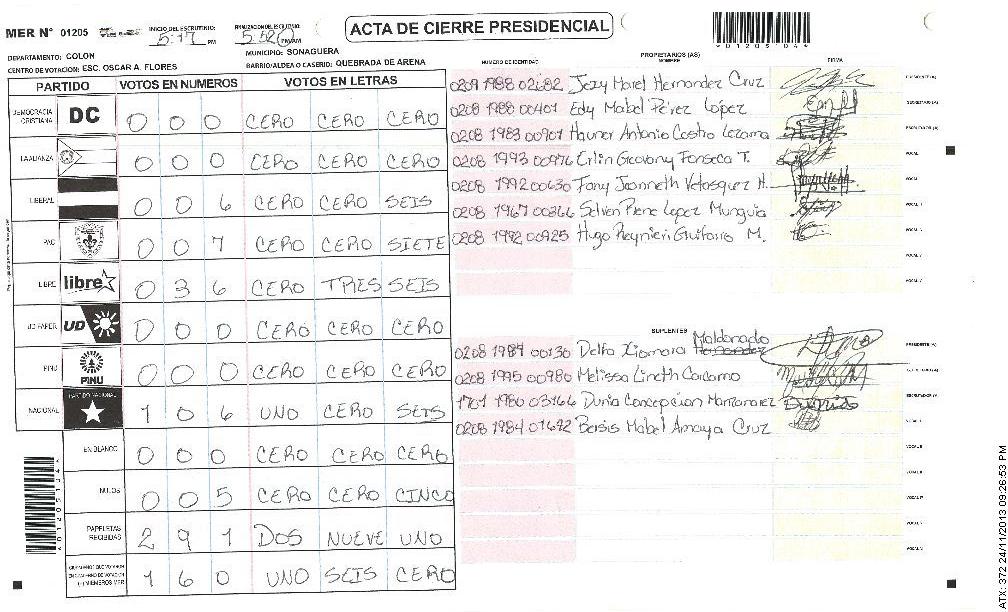 MER N° 01205
INICIO DEL ESCRUTINIO:
5:17 PM
FINALIZACION DEL ESCRUTINIO:
5:52 PM/AM
ACTA DE CIERRE PRESIDENCIAL
*01205104*
DEPARTAMENTO: COLON
MUNICIPIO: SONAGUERA
CENTRO DE VOTACION: ESC. OSCAR A. FLORES
BARRIO/ALDEA O CASERIO: QUEBRADA DE ARENA
PARTIDO VOTOS EN NUMEROS VOTOS EN LETRAS
DEMOCRACIA CRISTIANA DC 0 0 0 CERO CERO CERO
LA ALIANZA 0 0 0 CERO CERO CERO
LIBERAL 0 0 6 CERO CERO SEIS
PAC 0 0 7 CERO CERO SIETE
LIBRE libre 0 3 6 CERO TRES SEIS
UD FAPER UD 0 0 0 CERO CERO CERO
PINU PINU 0 0 0 CERO CERO CERO
NACIONAL PARTIDO NACIONAL 1 0 6 UNO CERO SEIS
EN BLANCO 0 0 0 CERO CERO CERO
NULOS 0 0 5 CERO CERO CINCO
PAPELETAS RECIBIDAS 2 9 1 DOS NUEVE UNO
1 6 0 UNO SEIS CERO
PROPIETARIOS (AS)
NUMERO DE IDENTIDAD NOMBRE FIRMA
0209 1988 02682 Jezy Morel Hernandez Cruz PRESIDENTE (A)
0208 1988 00401 Edy Mabel Pérez López SECRETARIO (A)
0208 1983 00901 Hauner Antonio Castro Lezama ESCRUTADOR (A)
0208 1993 00976 Erlin Geovany Fonseca T. VOCAL I
0208 1992 00630 Fany Jeanneth Velasquez H.
0208 1967 00366 Lopez Munguia
0208 1992 00925 Hugo Reynieri Guifarro M.
SUPLENTES
0208 1989 00130 Delfa Xiomara Maldonado PRESIDENTE (A)
0208 1995 00980 Melissa Lineth Carcamo SECRETARIO (A)
1701 1980 03166 Dunia Concepcion Manzanarez ESCRUTADOR (A)
0208 1984 01692 Bessis Mabel Amaya Cruz
ATX: 372 24/11/2013 09:26:53 PM